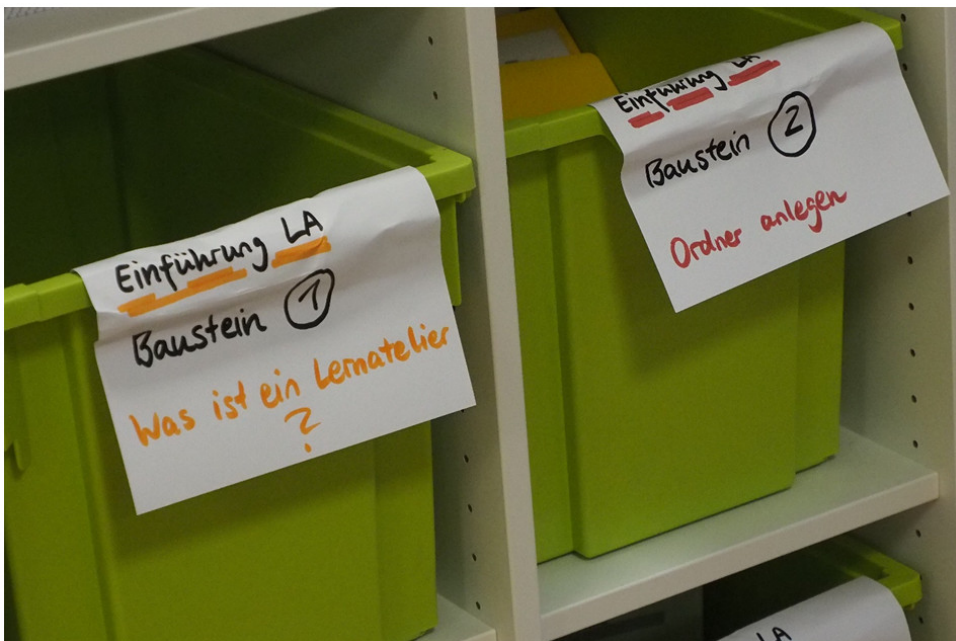 Einführung LA
Baustein 1
Was ist ein Lernatelier
?
Einführung LA
Baustein 2
Ordner anlegen
LA